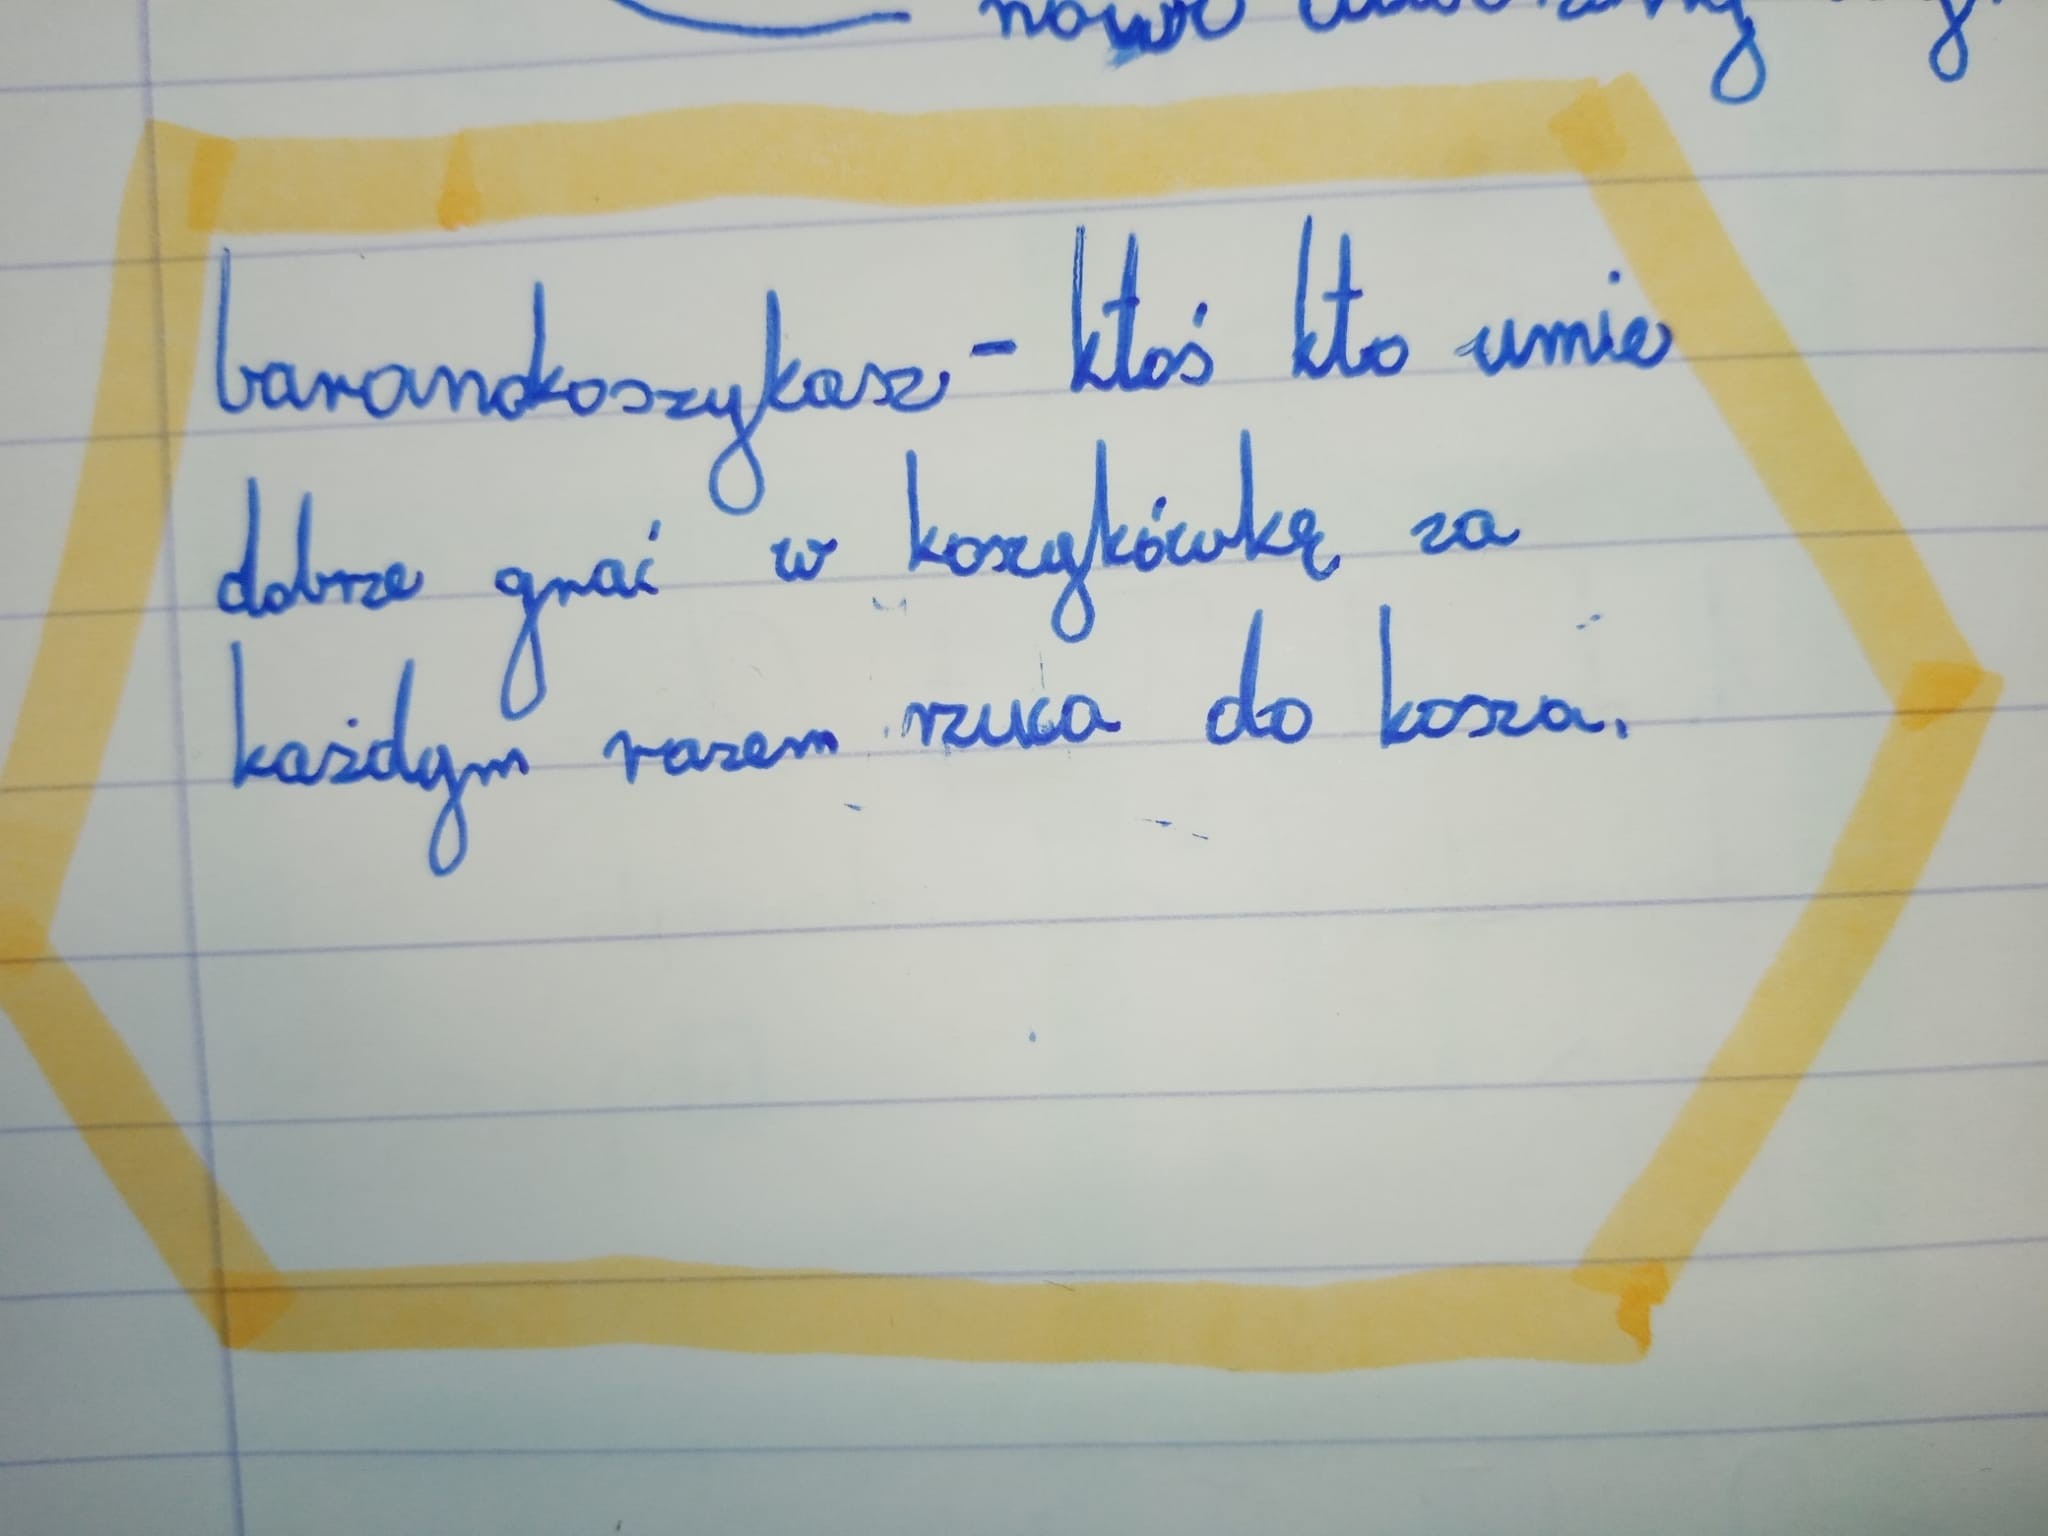 barandkoszykasz - ktoś kto umie
dobrze grać w koszykówkę za
każdym razem rzuca do kosza.